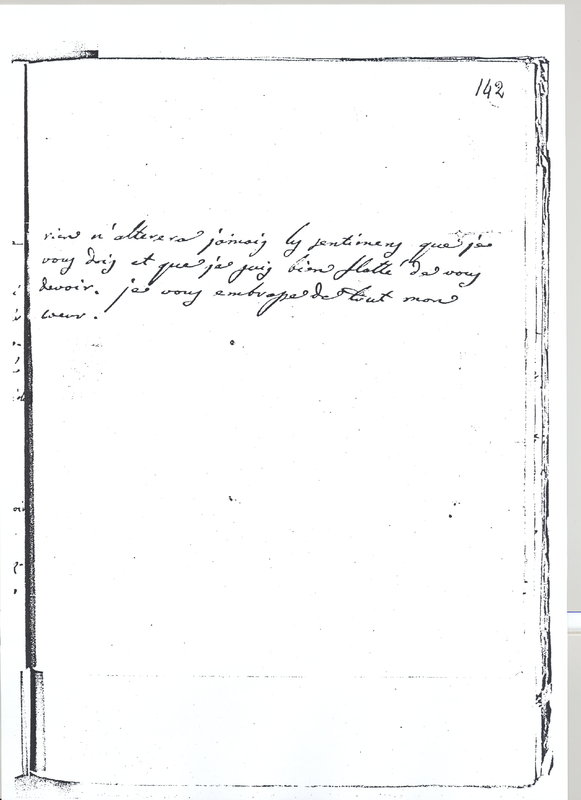 142
rien n'alterera jamais les sentimens que je
vous dois et que je suis bien flatté de vous
devoir. je vous embrasse de tout mon
coeur.